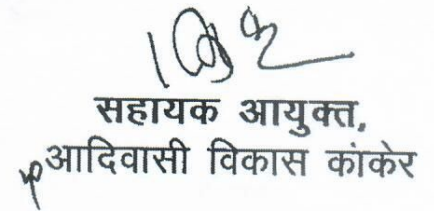 सहायक आयुक्त,
आदिवासी विकास कांकेर